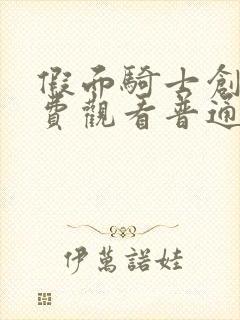 假面騎士創
費觀看普通
伊萬諾娃